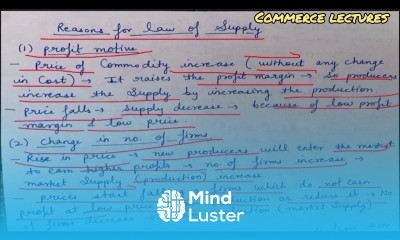 Commerce lectures
Reasons for law of Supply
(1) profit motive
- Price of Commodity increase (without any change
in Cost) → It raises the profit margin → So producers
increase the Supply by increasing the production.
- price falls → Supply decrease → because of low profit
margin & low price.
(2) Change in no. of firms
- Rise in price → new producers will enter the market
to earn higher profits → no. of firms increase →
market Supply (production) increase
- prices start firms which do not earn
profit at low or reduce it → No
of firms (market Supply)
Mind
Luster